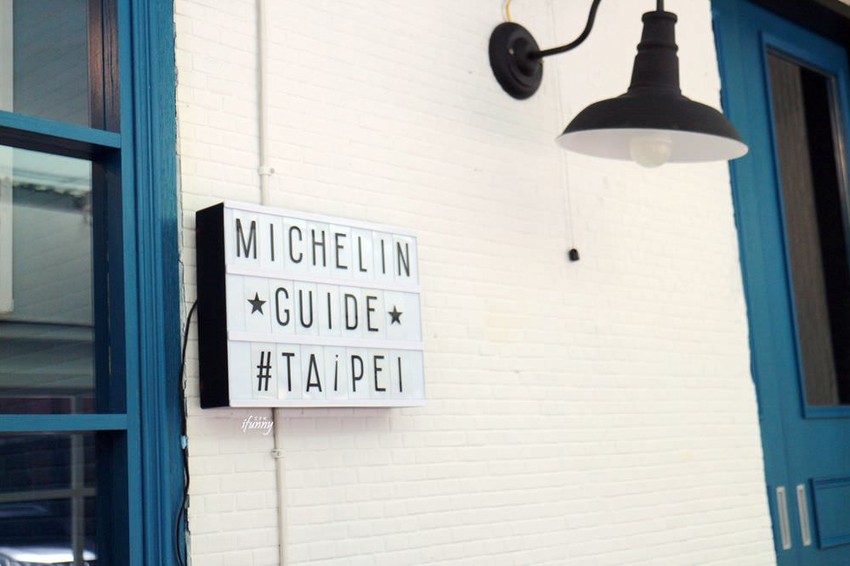 MICHELIN
★GUIDE★
#TAiPEI
ifunny